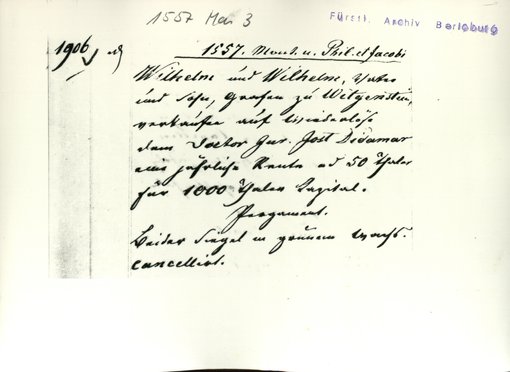 1557 Mai 3
Fürstl. Archiv Berleburg
1906
1557. Mont. n. Phil. et Jacobi
Wilhelm und Wilhelm, Vater
und Sohn, Grafen zu Witgenstein,
verkaufen auf Wiederlöse
dem Doctor Jur. Jost Didamar
eine jährliche Rente ad 50 Thaler
für 1000 Thaler Capital.
Pergament.
Beider Siegel in grünem Wachs.
cancellirt.